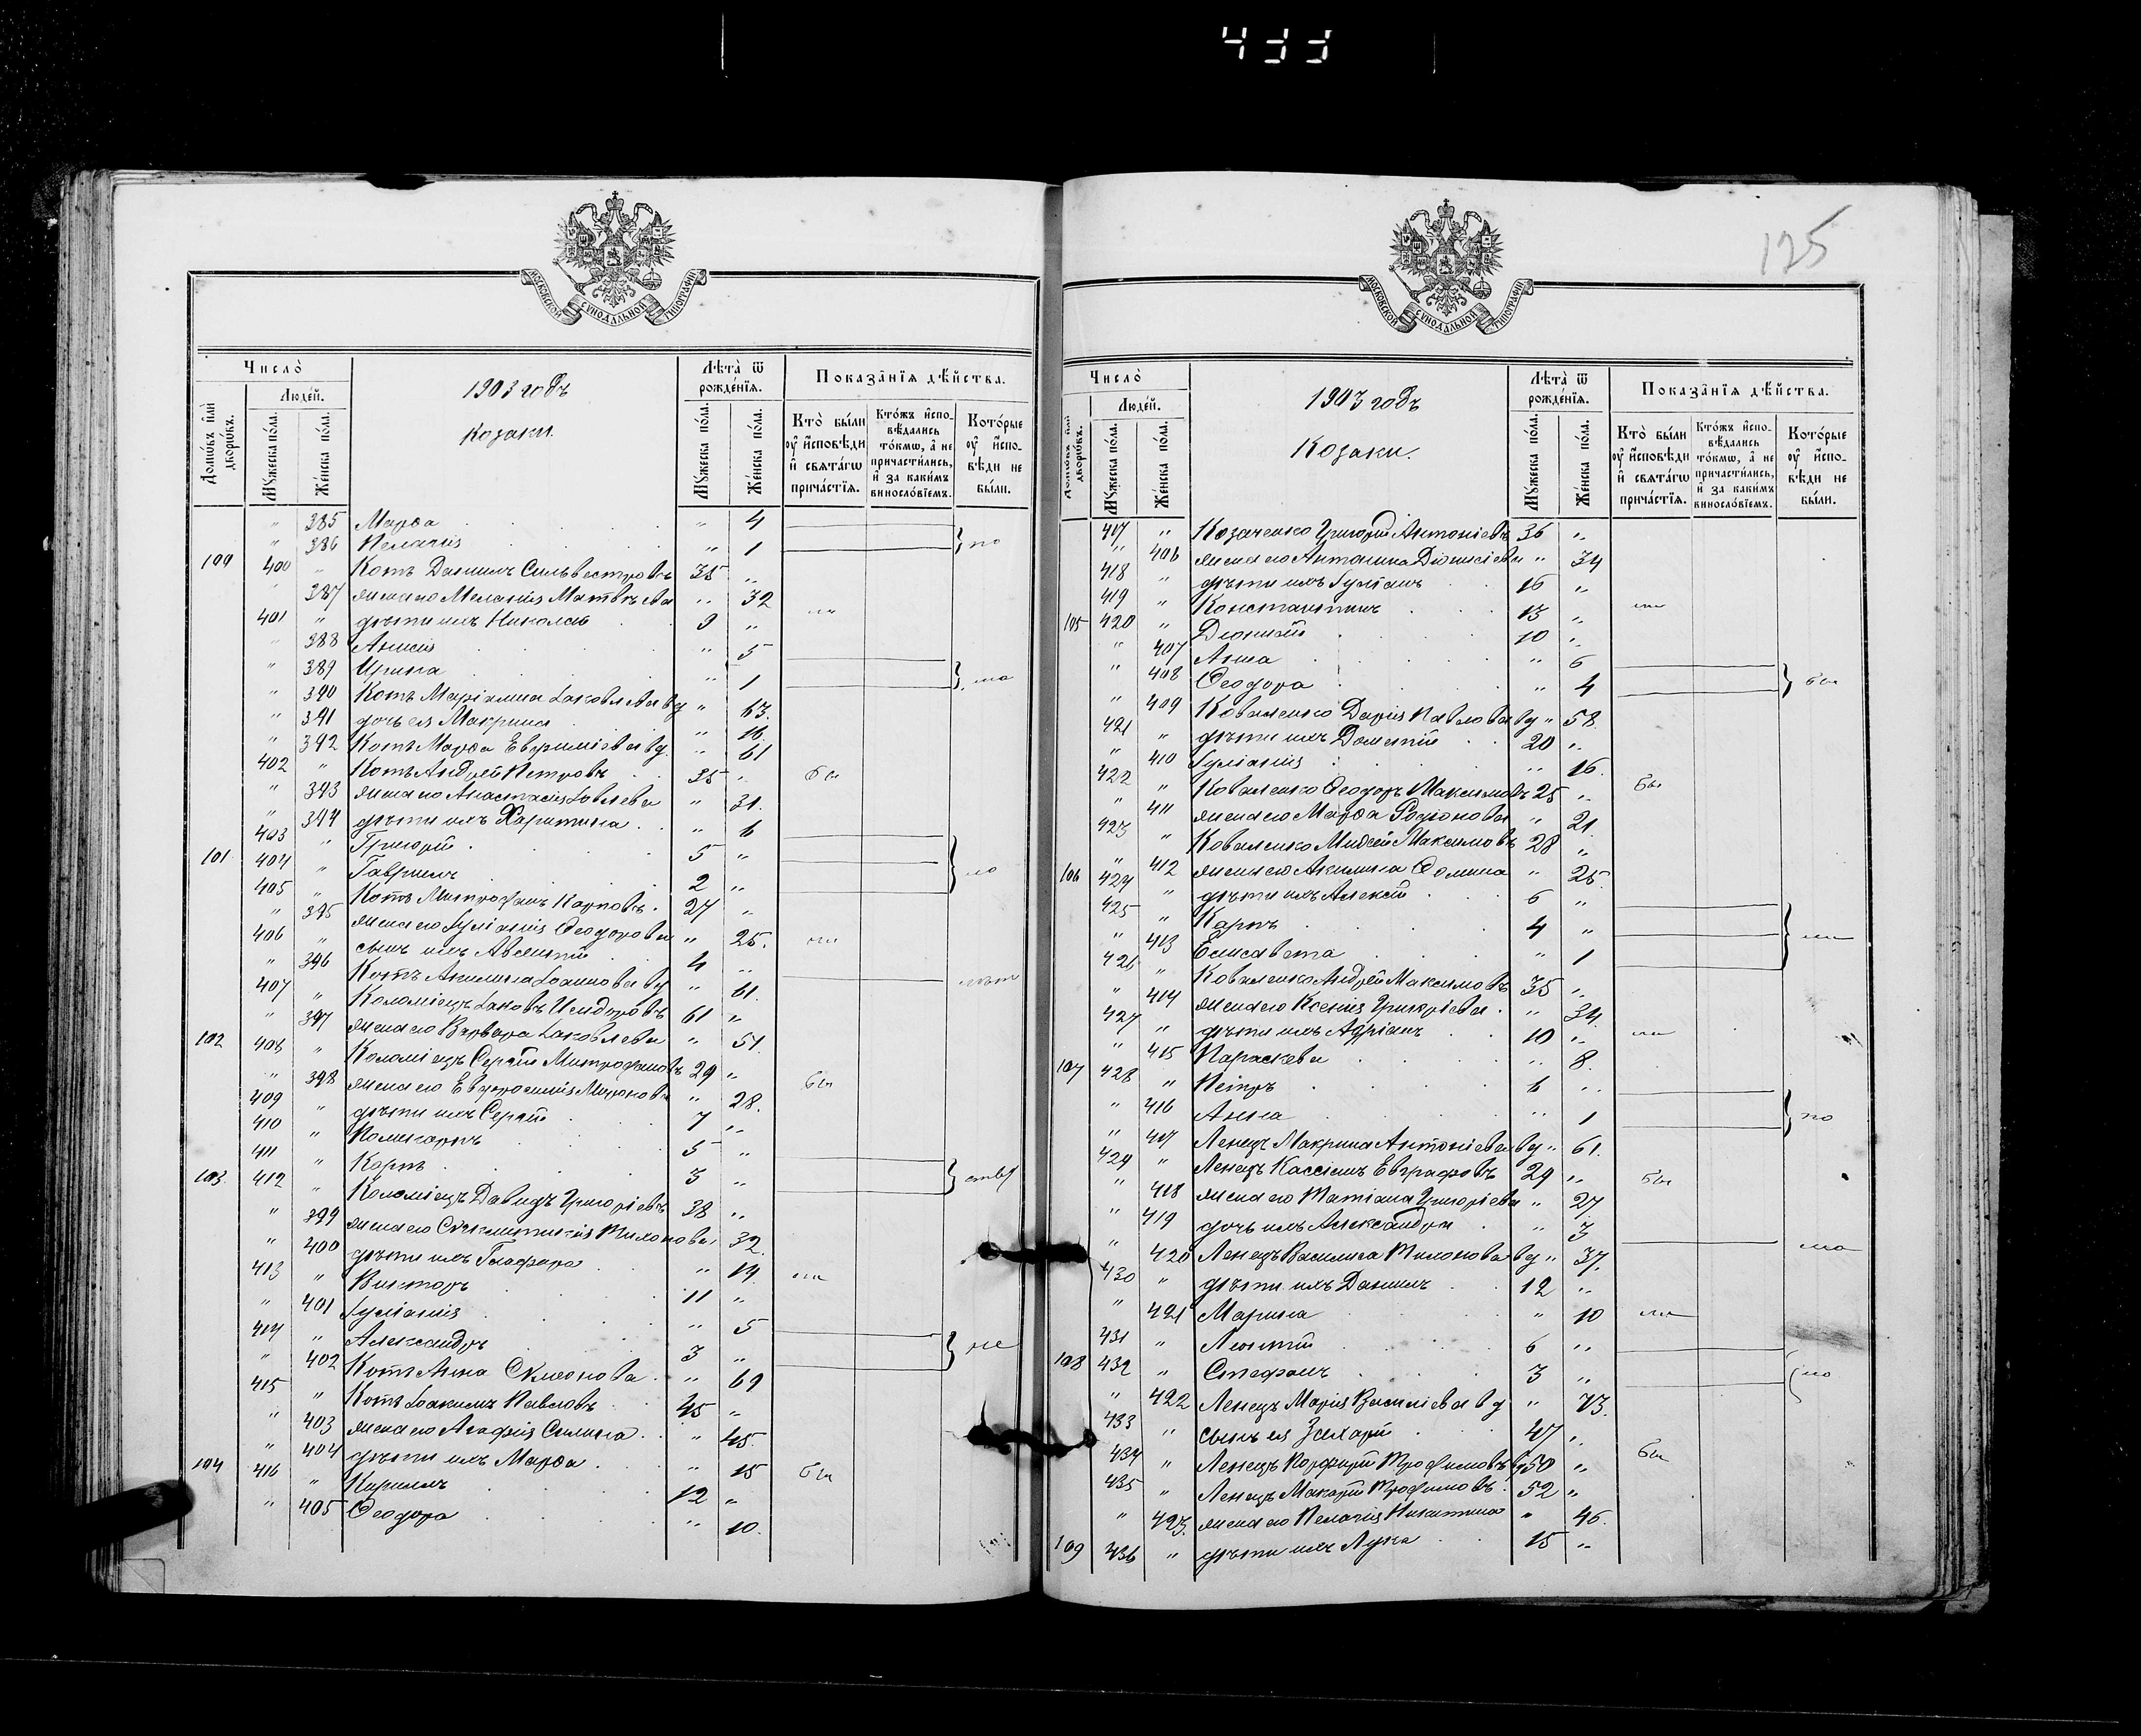 433
125
МОСКОВСКОЙ СѴНОДАЛЬНОЙ ТИПОГРАФІИ
Число̀
Домѡ́въ и҆лѝ дворѡ́въ.
Люде́й.
Мꙋ́жеска по́ла.
Же́нска по́ла.
1903 годъ
Козаки.
Лѣта̀ ѿ рожде́нїѧ.
Мꙋ́жеска по́ла.
Же́нска по́ла.
Показа̑нїѧ дѣ́йства.
Кто̀ бы́ли оу҆ и҆́сповѣди и҆ свѧта́гѡ прича́стїѧ.
Кто́жъ и҆спо-вѣ́дались то́кмѡ, а҆ не причасти́лись, и҆ за каки́мъ виносло́вїемъ.
Кото́рые оу҆ и҆́спо-вѣди не бы́ли.
" 385 Марѳа " 4
" 386 Пелагія " 1 по
100 400 " Котъ Даніилъ Сильвестровъ 35 "
" 387 жена его Меланія Матвѣева " 32
401 " дѣти ихъ Николай 9 "
" 388 Анисія " 5
" 389 Ирина " 1
" 390 Котъ Маріамна Іаковлева вд " 63.
" 391 дочь ея Макрина " 16.
" 392 Котъ Марѳа Евфиміева вд. " 61
402 " Котъ Андрей Петровъ 35 " бы
" 393 жена его Анастасія " 31.
" 394 дѣти ихъ Харитина " 6
403 " Григорій 5 "
101 404 " Гавріилъ 2 "
405 " Котъ Митрофанъ Карповъ 27 "
" 395 жена его Іуліанія Ѳеодорова " 25.
406 " сынъ ихъ 4 "
" 396 Котъ Акилина Іоаннова вд " 61.
407 " Коломіецъ Іаковъ Исидоровъ 61 "
" 397 жена его Варвара Іаковлева " 51.
102 408 " Коломіецъ Сергій Митрофановъ 29 "
" 398 жена его Евфросинія Миронова " 28. бы
409 " дѣти ихъ Сергій 7 "
410 " Поликарпъ 5 "
411 " Карпъ 3 "
103. 412 " Коломіецъ Давидъ Григоріевъ 38 "
" 399 жена его Тихонова 32.
" 400 дѣти ихъ Глафира " 14.
413 " Викторъ 11 "
" 401 Іуліанія " 5
414 " Александръ 3 " не
" 402 Котъ Анна Симеонова " 69
415 " Котъ Іоакимъ Павловъ 45 "
" 403 жена его Агафія Силина " 45.
" 404 дѣти ихъ Марѳа " 15
104 416 " Кириллъ 12 " бы
" 405 Ѳеодора " 10.
МОСКОВСКОЙ СѴНОДАЛЬНОЙ ТИПОГРАФІИ
Число̀
Домѡ́въ и҆лѝ дворѡ́въ.
Люде́й.
Мꙋ́жеска по́ла.
Же́нска по́ла.
1903 годъ
Козаки.
Лѣта̀ ѿ рожде́нїѧ.
Мꙋ́жеска по́ла.
Же́нска по́ла.
Показа̑нїѧ дѣ́йства.
Кто̀ бы́ли оу҆ и҆́сповѣди и҆ свѧта́гѡ прича́стїѧ.
Кто́жъ и҆спо-вѣ́дались то́кмѡ, а҆ не причасти́лись, и҆ за каки́мъ виносло́вїемъ.
Кото́рые оу҆ и҆́спо-вѣди не бы́ли.
417 " Козаченко Григорій Антоніевъ 36 "
" 406 жена его Антонина Діонисіева " 34
418 " дѣти ихъ Іуліанъ 16 "
419 " Константинъ 13 "
105 420 " Діонисій 10 "
" 407 Анна " 6
" 408 Ѳеодора " 4 бы
" 409 Коваленко Дарія Павлова вд " 58.
421 " дѣти ихъ Дометій 20 "
" 410 Іуліанія " 16.
422 " Коваленко Ѳеодоръ Максимовъ 25 " бы
" 411 жена его Марѳа Родіонова " 21.
423 " Коваленко Моисей Максимовъ 28 "
" 412 жена его Акилина Ѳомина " 25.
106 424 " дѣти ихъ Алексій 6 "
425 " Карпъ 4 "
" 413 Елисавета " 1
426 " Коваленко Андрей Максимовъ 35 "
" 414 жена его Ксенія Григоріева " 34.
427 " дѣти ихъ Адріанъ 10 "
" 415 Параскева " 8.
107 428 " Петръ 6 "
" 416 Анна " 1 по
" 417 Ленецъ Макрина Антоніева вд " 61.
429 " Ленецъ Кассіанъ Евграфовъ 29 " бы
" 418 жена его Татіана Григоріева " 27
" 419 дочь ихъ Александра " 3
" 420 Ленецъ Василиса Тихонова вд " 37.
430 " дѣти ихъ Даніилъ 12 "
" 421 Марина " 10
431 " Леонтій 6 "
108 432 " Стефанъ 3 "
" 422 Ленецъ Марія Василіева вд " 73.
433 " сынъ ея Захарій 47 "
434 " Ленецъ Порфирій Трофимовъ 50 " бы
435 " Ленецъ Макарій Трофимовъ 52 "
" 423. жена его Пелагія Никитина " 46.
109 436 " дѣти ихъ Лука 15 "